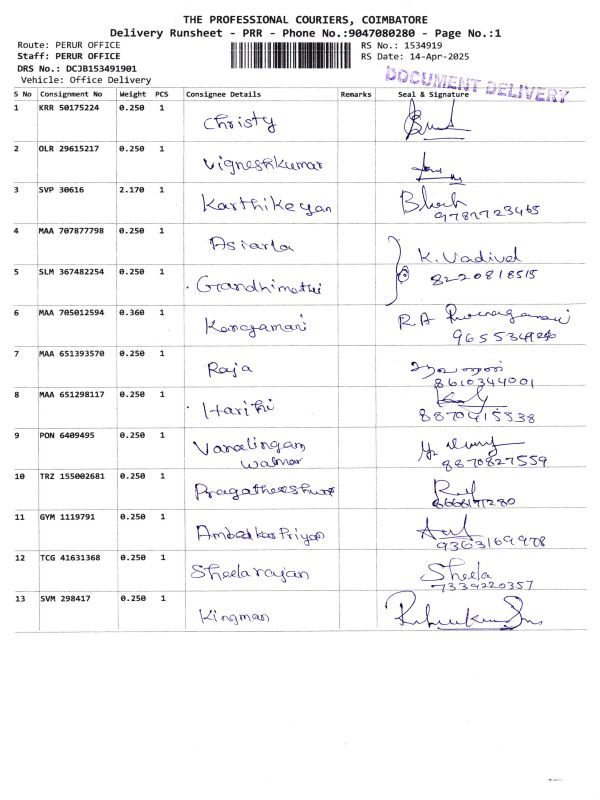 THE PROFESSIONAL COURIERS, COIMBATORE
Delivery Runsheet - PRR - Phone No.:9047080280 - Page No.:1
Route: PERUR OFFICE RS No.: 1534919
Staff: PERUR OFFICE RS Date: 14-Apr-2025
DRS No.: DCJB153491901
Vehicle: Office Delivery
DOCUMENT DELIVERY
S No Consignment No Weight PCS Consignee Details Remarks Seal & Signature
1 KRR 50175224 0.250 1 Christy
2 OLR 29615217 0.250 1 Vigneshkumar
3 SVP 30616 2.170 1 Karthikeyan
9787723465
4 MAA 707877798 0.250 1 Asiarla K. Vadivel
8220818515
5 SLM 367482254 0.250 1 Grandhimathi
6 MAA 705012594 0.360 1 Kanagamani R.A
7 MAA 651393570 0.250 1 Raja
8610344001
8 MAA 651298117 0.250 1 Harithi
8870415538
9 PON 6409495 0.250 1 Vanalingam
walmar
8870827559
10 TRZ 155002681 0.250 1
11 GYM 1119791 0.250 1 Ambedkar Priyan
9363169978
12 TCG 41631368 0.250 1 Sheelarajan Sheela
7339220357
13 SVM 298417 0.250 1 Kingman